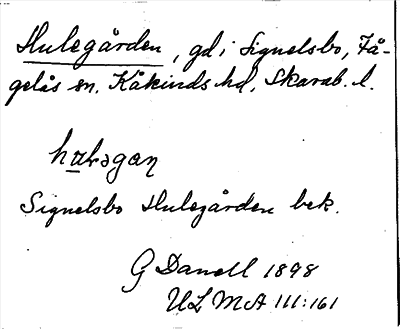 Hulegården, gd i Signelsbo, Få-
gelås sn. Kåkinds hd, Skarab. l.
Signelsbo Hulegården bek.
G Danell 1898
ULMA 111:161